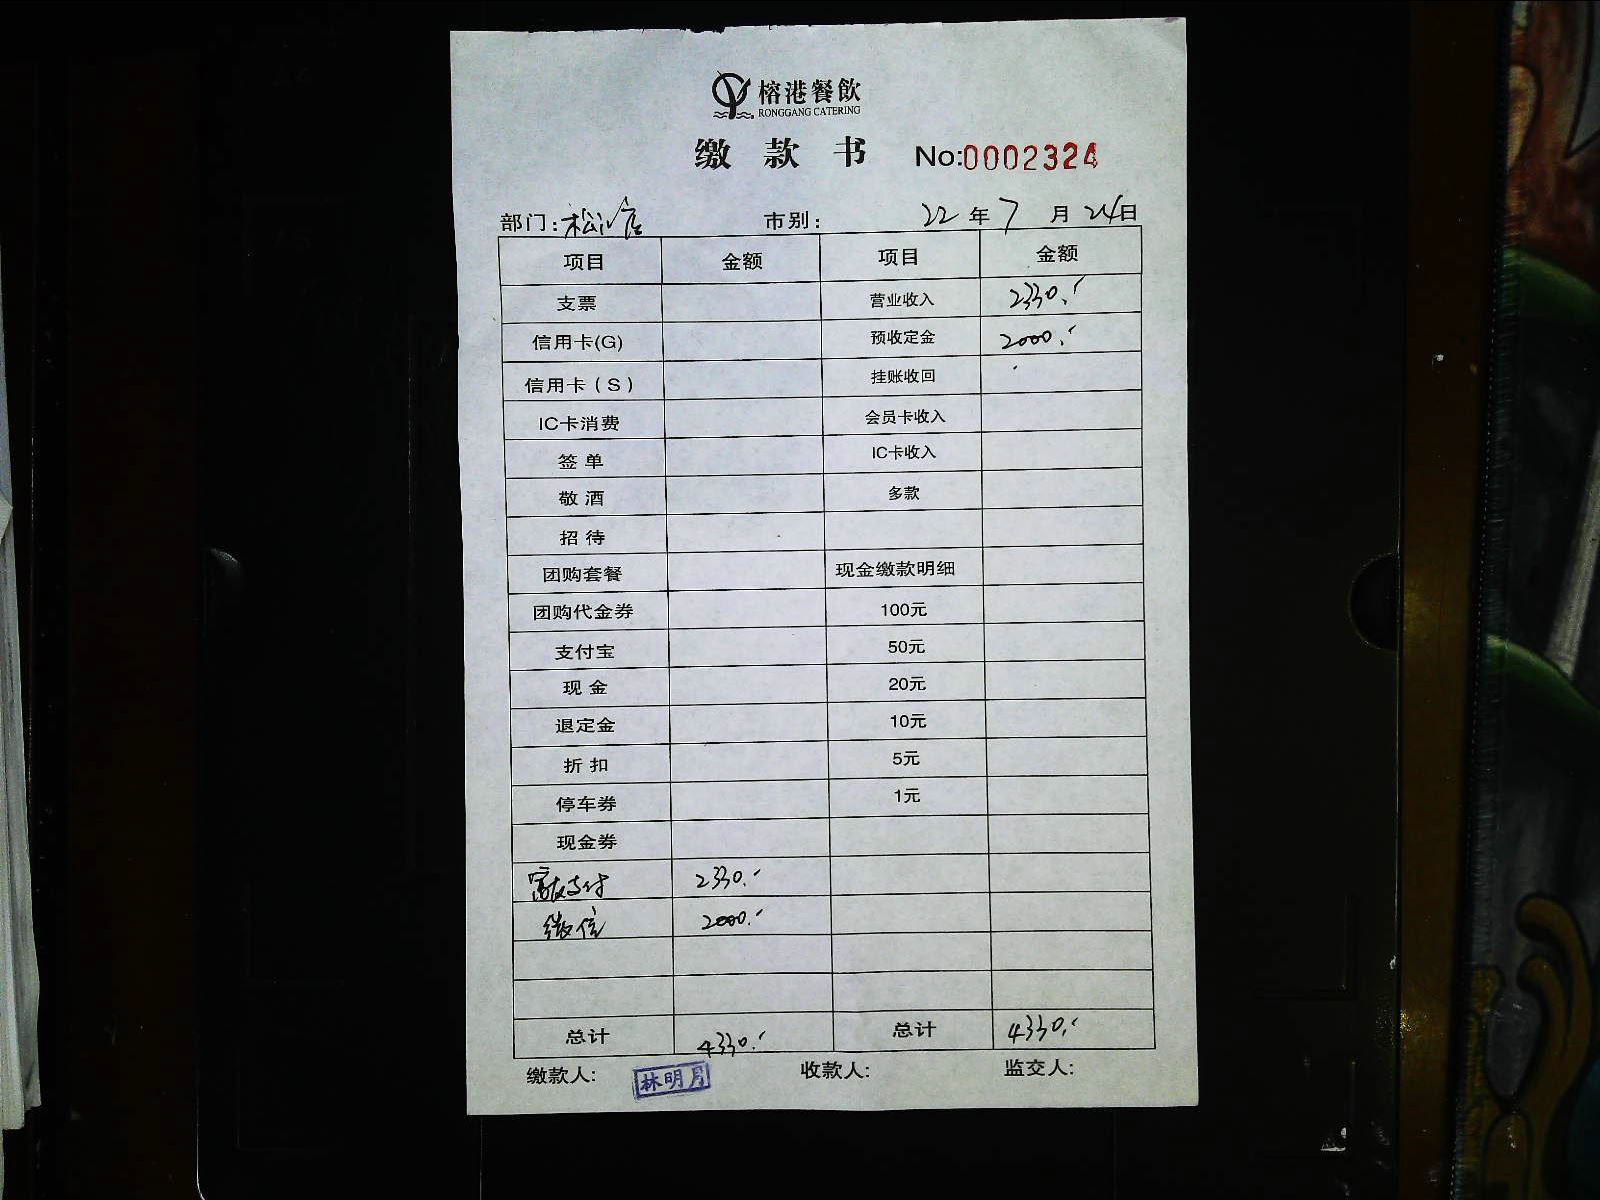 榕港餐飲
RONGGANG CATERING
缴款书 No:0002324
部门: 松江店 市别: 22年7月24日
项目 金额 项目 金额
支票 营业收入 2330.-
信用卡(G) 预收定金 2000.-
信用卡(S) 挂账收回
IC卡消费 会员卡收入
签单 IC卡收入
敬酒 多款
招待
团购套餐 现金缴款明细
团购代金券 100元
支付宝 50元
现金 20元
退定金 10元
折扣 5元
停车券 1元
现金券
富友支付 2330.-
微信 2000.-
总计 4330.- 总计 4330.-
缴款人: 林明月 收款人: 监交人: